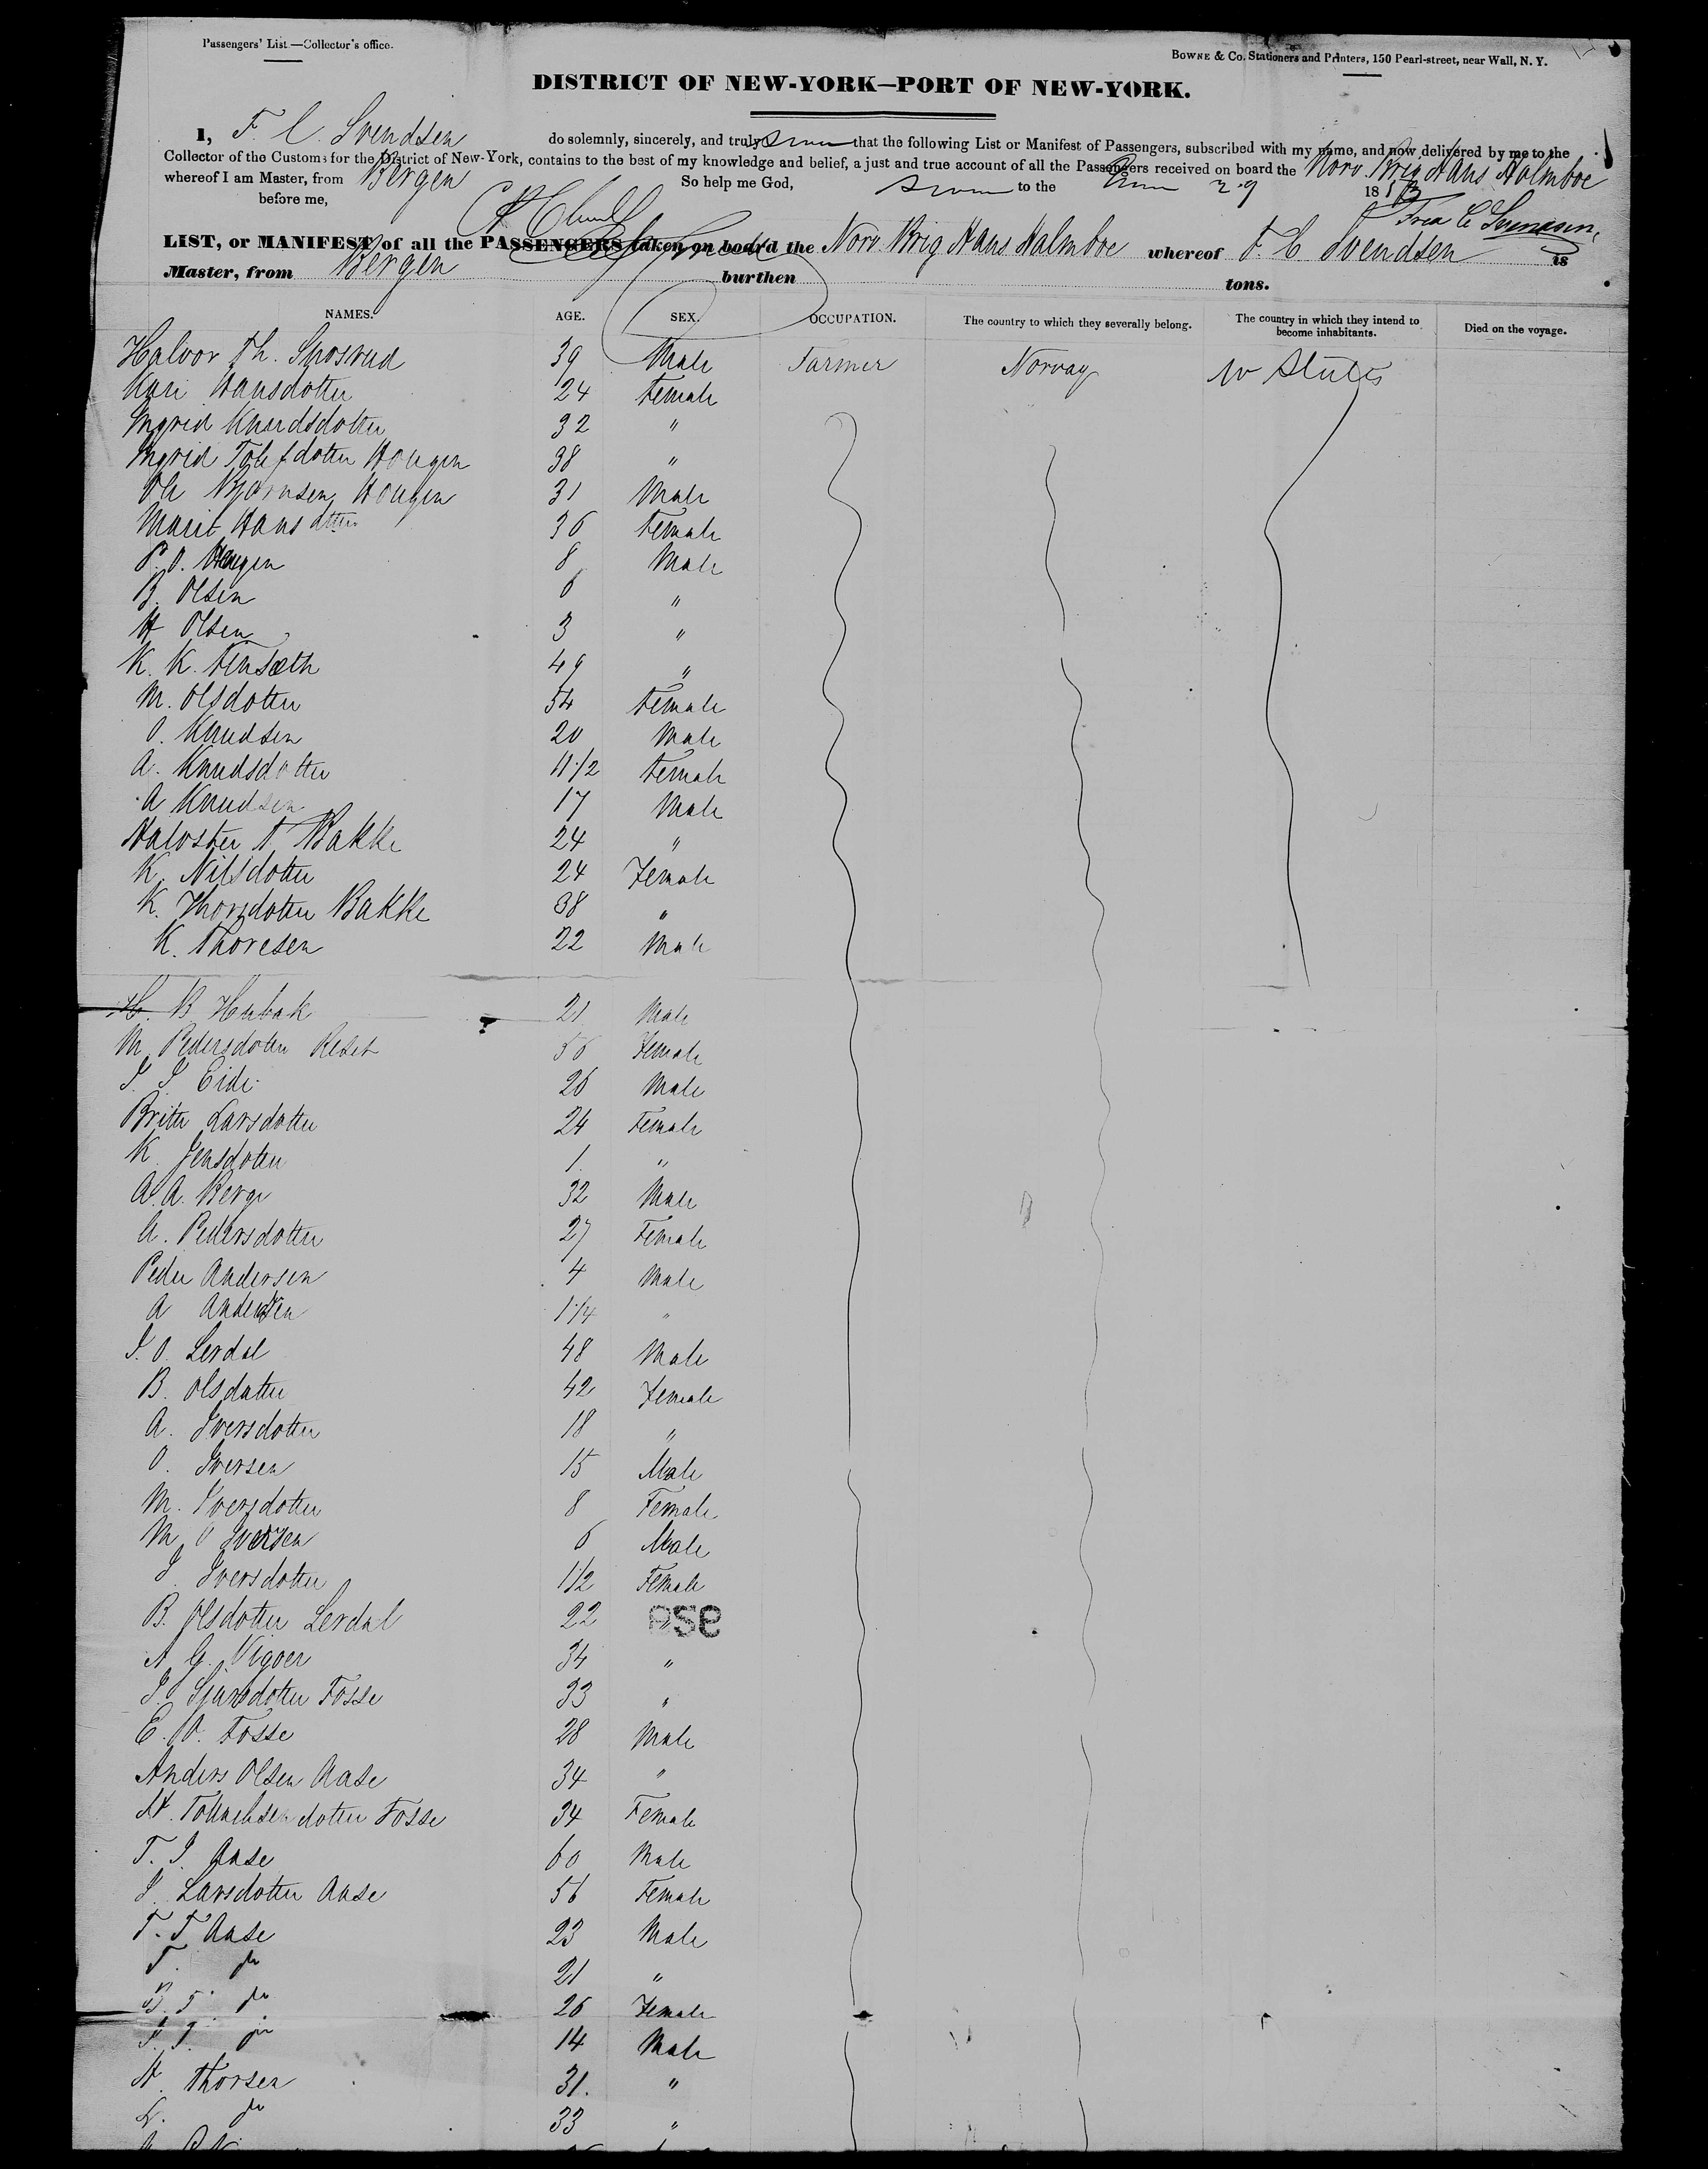 Passengers' List.—Collector's office.
BOWNE & Co. Stationers and Printers, 150 Pearl-street, near Wall, N. Y.
DISTRICT OF NEW-YORK—PORT OF NEW-YORK.
I, F. C. Svendsen do solemnly, sincerely, and truly that the following List or Manifest of Passengers, subscribed with my name, and now delivered by me to the
Collector of the Customs for the District of New-York, contains to the best of my knowledge and belief, a just and true account of all the Passengers received on board the Norv. Brig Hans Holmboe
whereof I am Master, from Bergen So help me God,
Sworn to the 29 18
before me,
LIST, or MANIFEST of all the PASSENGERS taken on board the Norv. Brig Hans Holmboe whereof F. C. Svendsen is
Master, from Bergen burthen tons.
NAMES. AGE. SEX. OCCUPATION. The country to which they severally belong. The country in which they intend to become inhabitants. Died on the voyage.
Halvor Th. 39 Male Farmer Norway States
Kari Hansdotter 24 Female
Ingrid Knudsdotter 32 "
Ingrid dotter Hougen 38 "
Ole Bjørnsen Hougen 31 Male
Marit Hansdtter 36 Female
P. O. Hougen 8 Male
B. Olsen 6 "
H Olsen 3 "
K. K. 49 "
M. Olsdotter 54 Female
O. Knudsen 20 Male
A. Knudsdotter 11 1/2 Female
A Knudsen 17 Male
T. Bakke 24 "
K. Nilsdotter 24 Female
K. Thorsdotter Bakke 38 "
K. Thoresen 22 Male
H. B. 21 Male
M. Pedersdotter 56 Female
J. J Eide 26 Male
Britte Larsdotter 24 Female
K. Jensdotter 1 "
A. A. Berge 32 Male
A. Pedersdotter 27 Female
Peder Andersen 4 Male
A Andersen 1 1/4 "
I. O. Lerdal 48 Male
B. Olsdotter 42 Female
A. Iversdotter 18 "
O. Iversen 15 Male
M. Iversdotter 8 Female
M. O Iversen 6 Male
I. Iversdotter 1 1/2 Female
B. Olsdotter Lerdal 22 "
A. G. 34 "
dotter Fosse 33 "
E. O. Fosse 28 Male
Anders Olsen Aase 34 "
dotter Fosse 34 Female
T. I. Aase 60 Male
I. Larsdotter Aase 56 Female
T. T Aase 23 Male
T. do 21 "
B. T. do 26 Female
do 14 Male
Thorsen 31. "
do 33 "